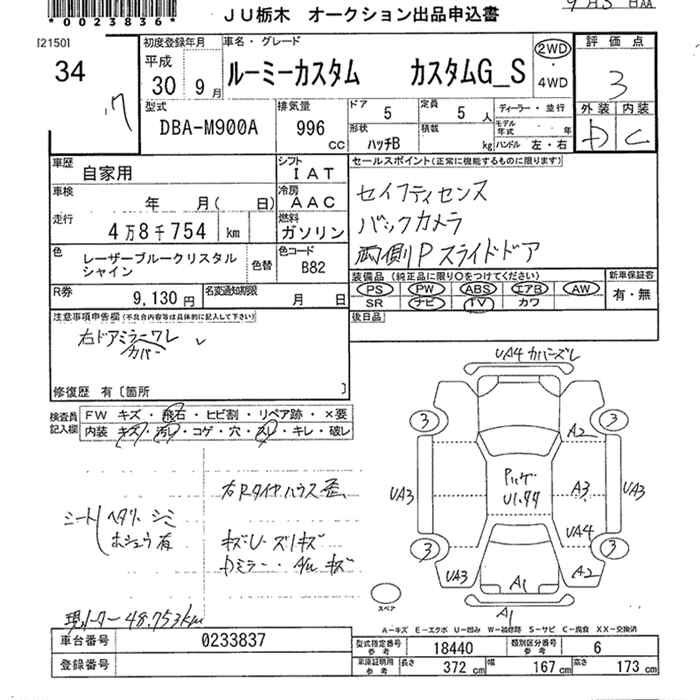 *0023836*
JU栃木 オークション出品申込書
[2150]
34
初度登録年月
平成
30 9月
車名・グレード
ルーミーカスタム カスタムG_S
2WD
・
4WD
評価点
3
外装 内装
D C
型式
DBA-M900A
排気量
996
CC
ドア 5
定員 5人
形状 ハッチB
積載 kg
ディーラー・並行
モデル年式 年
ハンドル 左・右
車歴
自家用
シフト
IAT
車検
年 月( 日)
冷房
AAC
走行
4万8千754 km
燃料
ガソリン
色
レーザーブルークリスタル
シャイン
色替
色コード
B82
R券
9,130円
名変通知期限
月 日
セールスポイント(正常に機能するものに限ります)
セイフティセンス
バックカメラ
両側Pスライドドア
装備品(純正品に限り○をつけてください)
PS PW ABS エアB AW
SR ナビ TV カワ
新車保証書
有・無
後日品
注意事項申告欄(不具合内容等は具体的に記入して下さい)
右ドアミラーワレ
カバー
修復歴 有〔箇所 〕
検査員
記入欄
FW キズ・飛石・ヒビ割・リペア跡・×要
内装 キズ・汚れ・コゲ・穴・スレ・キレ・破レ
右Rタイヤハウス歪
シート ヘタリ・シミ
ホシュウ有
キズU・スリキズ
ドミラー・A/W キズ
現メーター 48.753km
UA4 カバーズレ
3
3
A2
UA3
Pルーフ
U1.A4
A3
UA3
UA4
3
3
UA3
A1
A2
スペア
A1
A-キズ E-エクボ U-凹み W-補修跡 S-サビ C-腐食 XX-交換済
車台番号
0233837
登録番号
型式指定番号
参考
18440
類別区分番号
参考
6
車庫証明用
参考
長さ 372 cm
幅 167 cm
高さ 173 cm